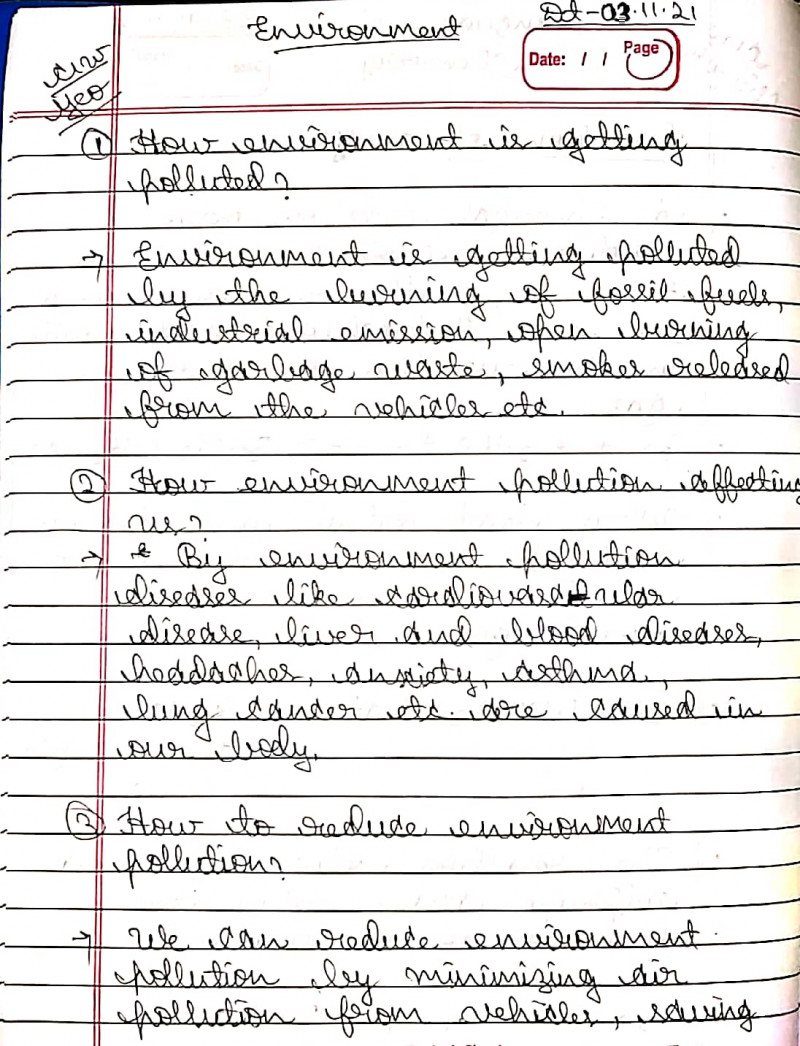 Environment
Dt-03.11.21
Date: / / Page
C.W
Geo
① How environment is getting
polluted?
→ Environment is getting polluted
by the burning of fossil fuels,
industrial emission, open burning
of garbage waste, smokes released
from the vehicles etc.
② How environment pollution affecting
us?
→ * By environment pollution
diseases like cardiovascular
disease, liver and blood diseases,
headaches, anxiety, asthma,
lung cancer etc. are caused in
our body.
③ How to reduce environment
pollution?
→ We can reduce environment
pollution by minimizing air
pollution from vehicles, saving